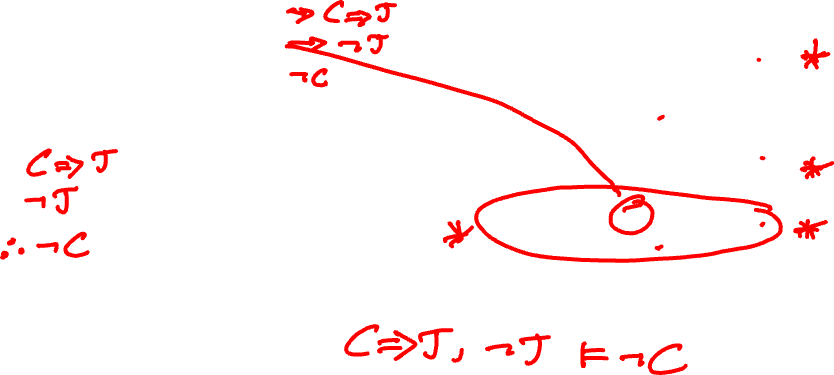 → C ⇒ J
⇒ ¬J
¬C
C ⇒ J
¬J
∴ ¬C
C ⇒ J, ¬J ⊨ ¬C